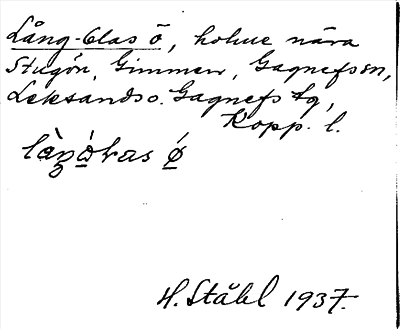 Lång-Olas ö, holme nära
Stugön, Gimmen, Gagnefs sn,
Leksands o. Gagnefs tg,
Kopp. l.
H. Ståhl 1937.